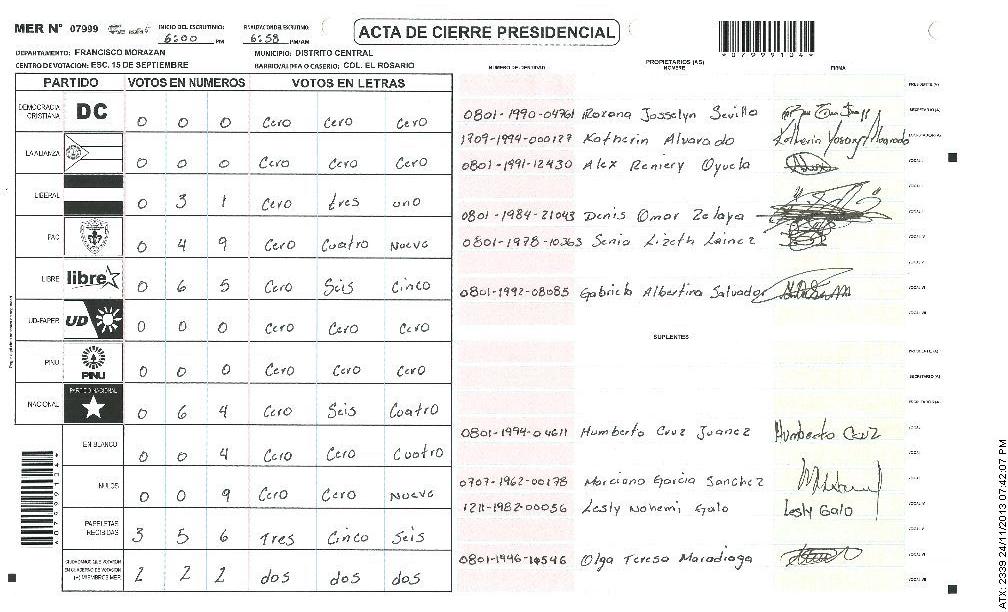 MER N° 07999
INICIO DEL ESCRUTINIO: 6:00 PM
FINALIZACION ESCRUTINIO: 6:58 PM/AM
ACTA DE CIERRE PRESIDENCIAL
*07999104*
DEPARTAMENTO: FRANCISCO MORAZAN
MUNICIPIO: DISTRITO CENTRAL
CENTRO DE VOTACION: ESC. 15 DE SEPTIEMBRE
BARRIO/ALDEA O CASERIO: COL. EL ROSARIO
PARTIDO VOTOS EN NUMEROS VOTOS EN LETRAS
DEMOCRACIA CRISTIANA DC 0 0 0 Cero Cero Cero
LA ALIANZA 0 0 0 Cero Cero Cero
LIBERAL 0 3 1 Cero tres uno
PAC 0 4 9 Cero Cuatro Nueve
LIBRE libre 0 6 5 Cero Seis Cinco
UD-FAPER UD 0 0 0 Cero Cero Cero
PINU PINU 0 0 0 Cero Cero Cero
NACIONAL PARTIDO NACIONAL 0 6 4 Cero Seis Cuatro
EN BLANCO 0 0 4 Cero Cero Cuatro
NULOS 0 0 9 Cero Cero Nueve
PAPELETAS RECIBIDAS 3 5 6 Tres Cinco Seis
CIUDADANOS QUE VOTARON EN CUADERNO DE VOTACION (+) MIEMBROS MER 2 2 2 dos dos dos
*07999104*
NUMERO DE IDENTIDAD PROPIETARIOS (AS) NOMBRE FIRMA
PRESIDENTE (A)
0801-1990-04761 Roxana Josselyn Sevilla SECRETARIO (A)
1709-1994-000127 Katherin Alvarado Katherin Alvarado
0801-1991-12430 Alex Reniery Oyuela
0801-1984-21043 Denis Omar Zelaya
0801-1978-10363 Senia Lizeth Lainez
0801-1992-08085 Gabriela Albertina Salvador
SUPLENTES
PRESIDENTE (A)
SECRETARIO (A)
0801-1994-04611 Humberto Cruz Juanez Humberto Cruz
0707-1962-00178 Marciano Garcia Sanchez
1211-1982-00056 Lesly Nohemi Galo Lesly Galo
0801-1946-14546 Olga Teresa Maradiaga
ATX: 2339 24/11/2013 07:42:07 PM